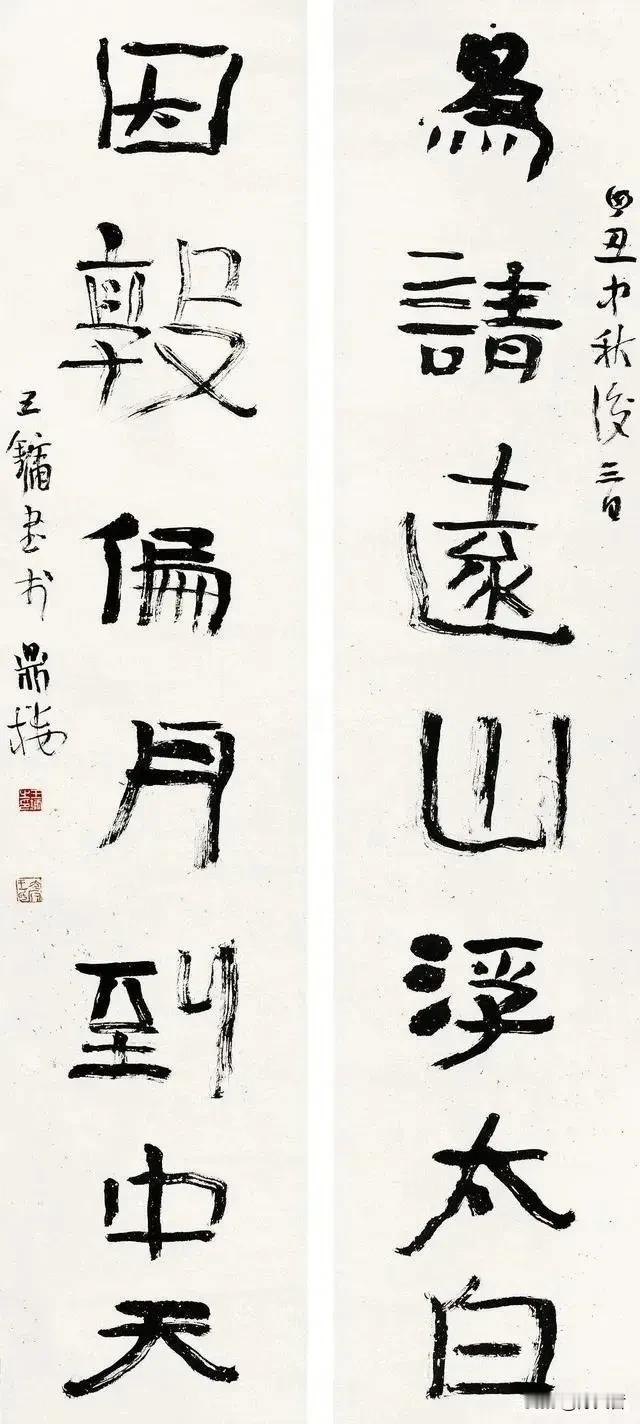 辛丑中秋後三日
為請遠山浮太白
因敦偏月到中天
王鏞書於鼎樓